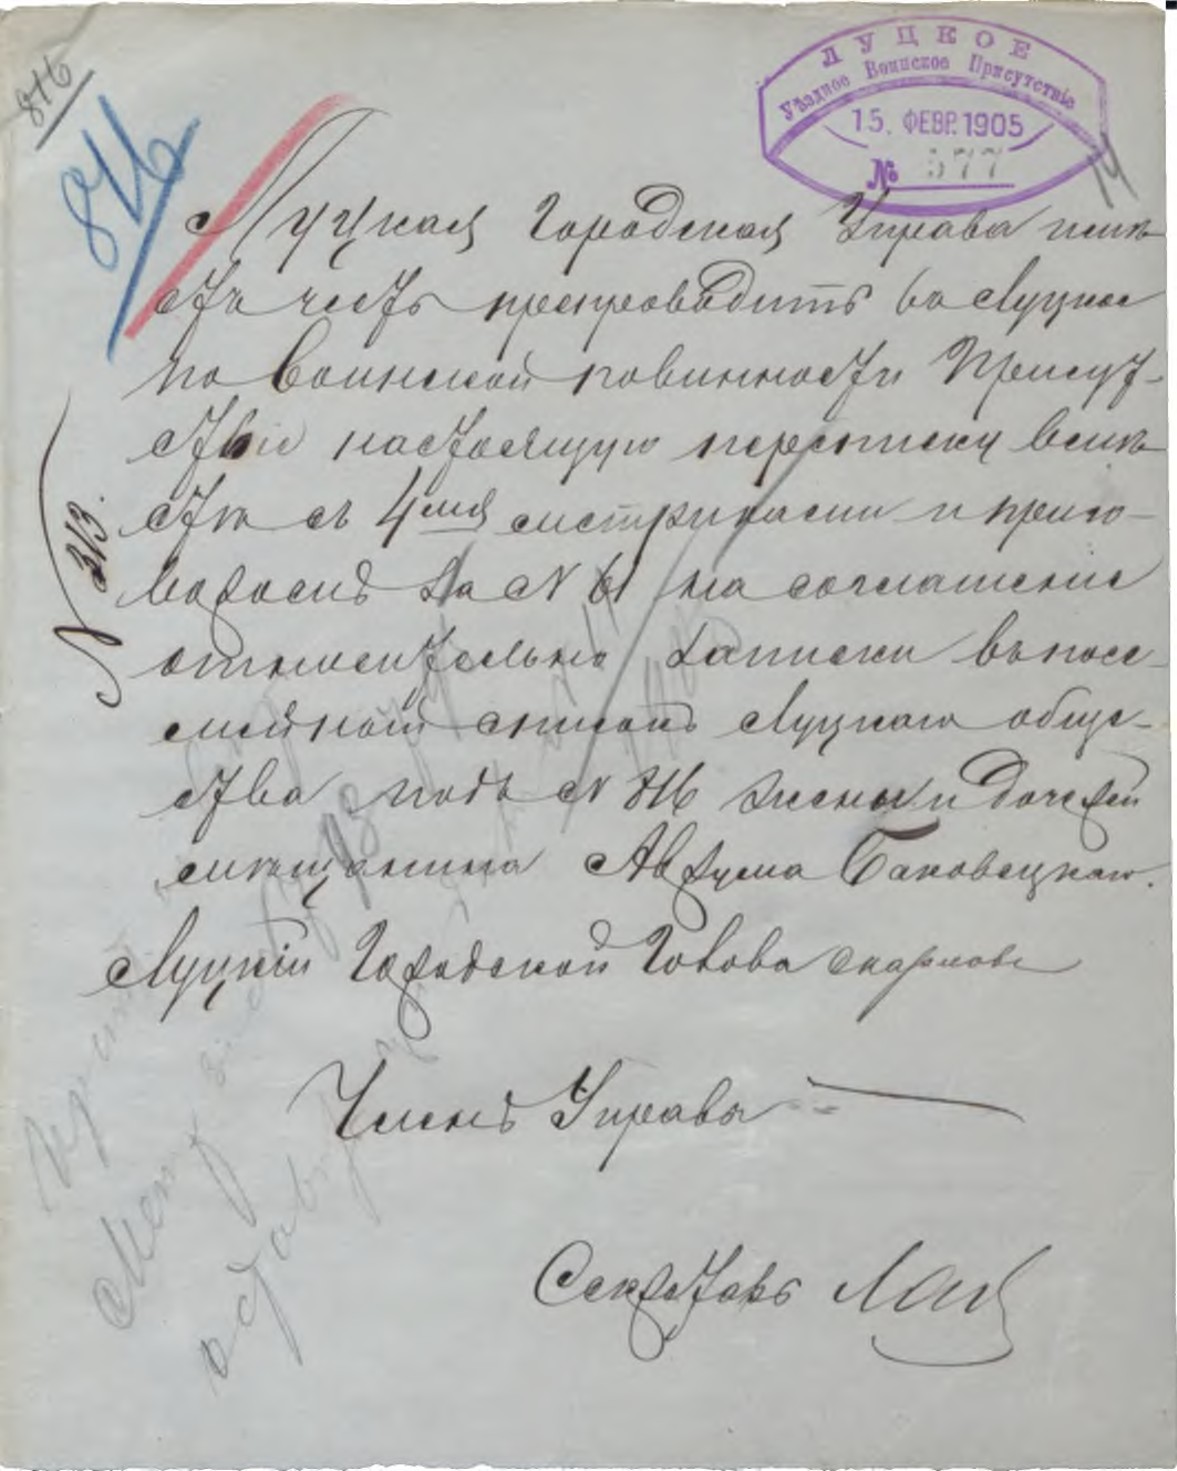 816
816
ЛУЦКОЕ
Уѣздное Воинское Присутствіе
15. ФЕВР. 1905
№ 577
14
Луцкая Городская Управа имѣ-
етъ честь препроводить въ Луцкое
по Воинской повинности Присут-
ствіе настоящую переписку вмѣ-
стѣ съ 4мя метриками и приго-
воромъ за № 61 на соглашение
относительно записки въ посе-
мейный списокъ Луцкаго общес-
тва подъ № 816 жены и дочерей
мѣщанина Аврума Баковецкаго.
Луцкій Городской Голова
Членъ Управы
Секретарь
№ 313.